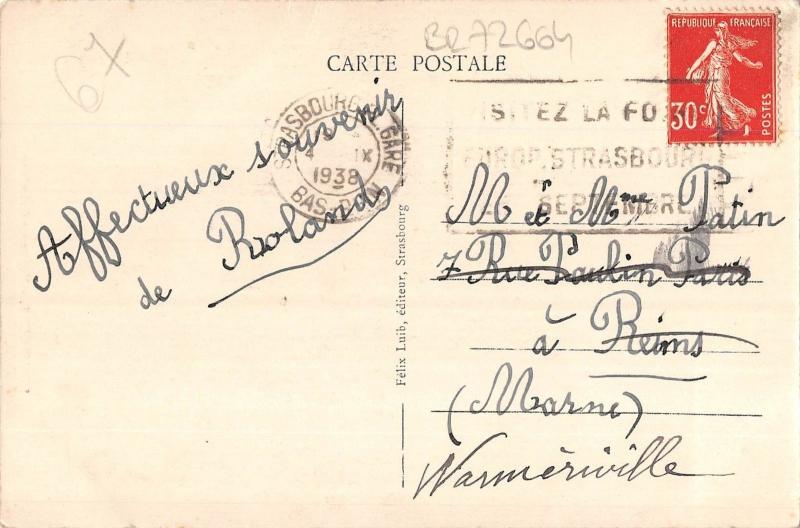 67
BR72664
CARTE POSTALE
RÉPUBLIQUE FRANÇAISE
30c
POSTES
STRASBOURG GARE
4 IX
1938
BAS-RHIN
VISITEZ LA FOIRE
EUROP. STRASBOURG
SEPTEMBRE
Affectueux souvenir
de Roland
Félix Luib, éditeur, Strasbourg
M et Mme Patin
7 Rue Paulin Paris
à Reims
(Marne)
Warmériville